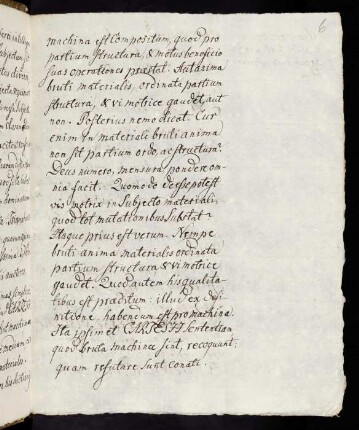 6
machina est compositum, quod pro
partium structura, & motus beneficio
suas operationes praestat. Aut anima
bruti materialis, ordinata partium
structura, & vi motrice gaudet, aut
non. Posterius nemo dicat. Cur
enim in materiali bruti anima
non sit partium ordo, ac structura?
Deus numero, mensura, pondere om-
nia facit. Quomodo deesse potest
vis motrix in subjecto materiali,
quod tot mutationibus substat?
Atque prius est verum. Nempe
bruti anima materialis ordinata
partium structura & vi motrice
gaudet. Quod autem his qualita-
tibus est praeditum: illud ex defi-
nitione habendum est pro machina.
Ita ipsimet CARTESII sententiam
quod bruta machinae sint, recoquunt,
quam refutare sunt conati.